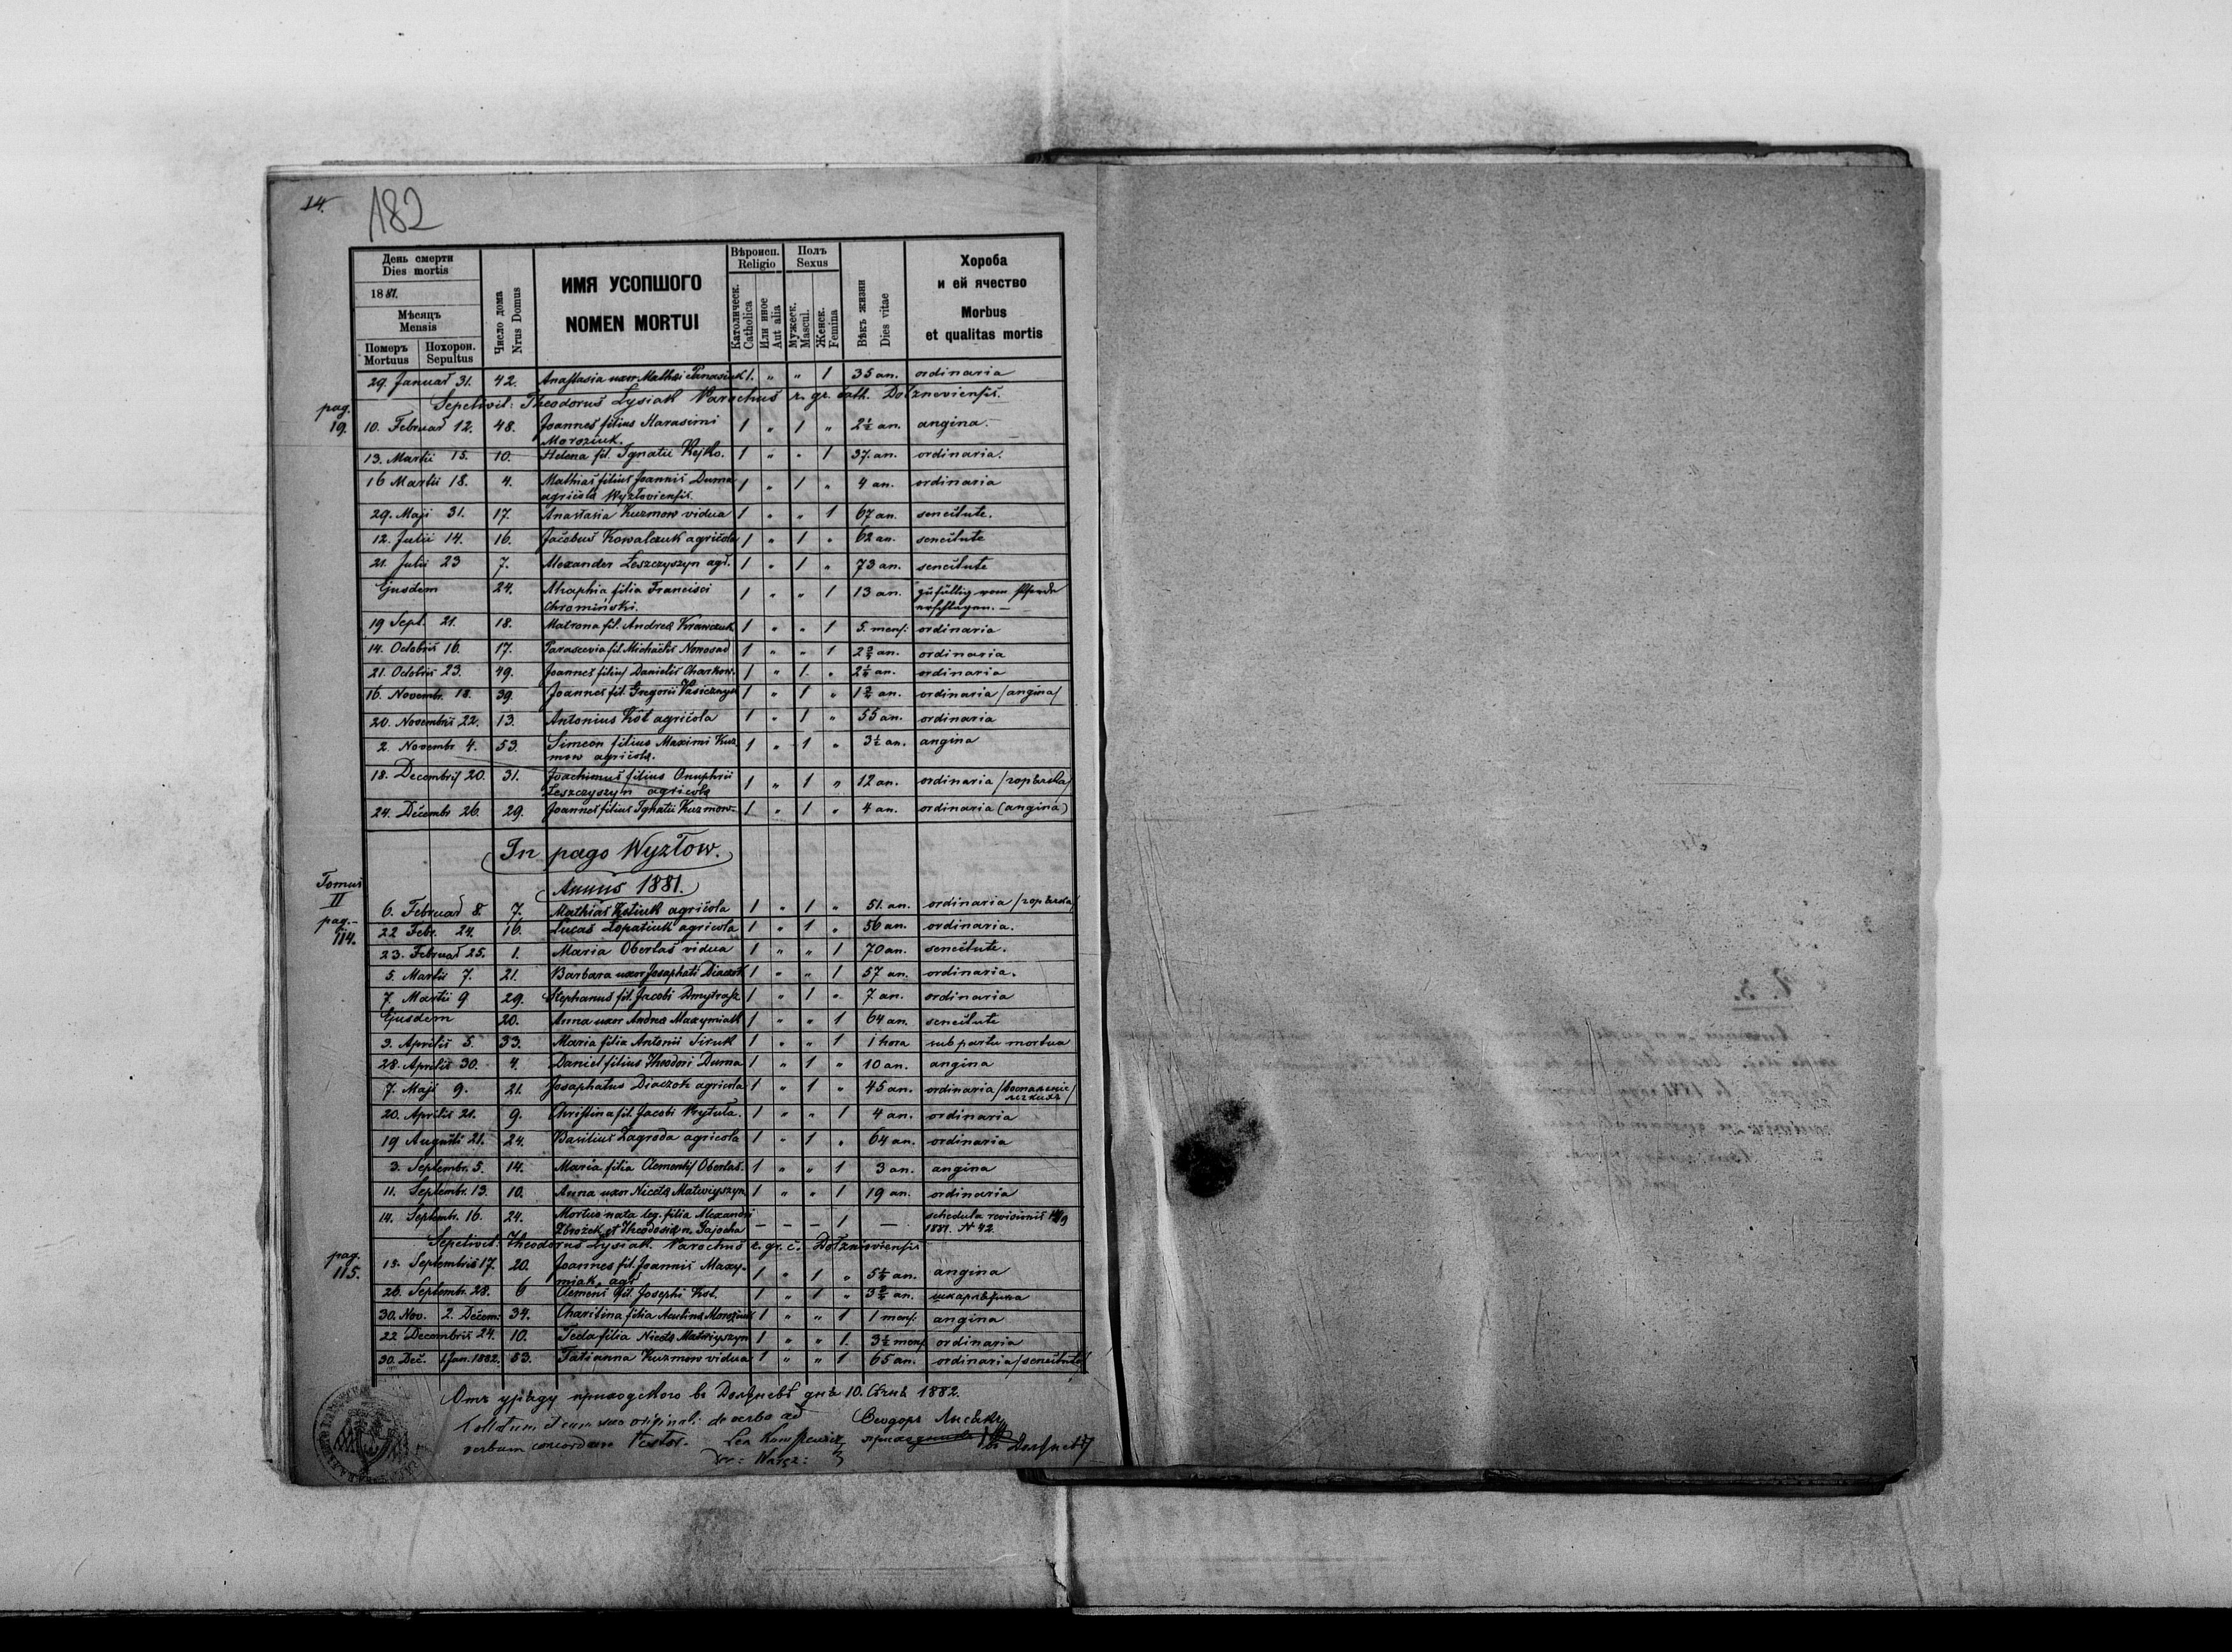 14.
182
День смерти
Dies mortis
1881.
Мѣсяцъ
Mensis
Померъ Mortuus
Похорон. Sepultus
Число дома
Nrus Domus
ИМЯ УСОПШОГО
NOMEN MORTUI
Вѣроисп.
Religio
Католическ.
Catholica
Или иное
Aut alia
Полъ
Sexus
Мужеск.
Mascul.
Женск.
Femina
Вѣкъ жизни
Dies vitae
Хороба
и ей ячество
Morbus
et qualitas mortis
29. Januar 31. 42. Anastasia uxor Mathei Panasiuk 1. " " 1 35 an. ordinaria
Sepelivit: Theodorus Łysiak Parochus r. gr. cath. Dołznoviensis.
pag. 19.
10. Februar 12. 48. Joannes filius Harasimi 1 " 1 " 2½ an. angina.
Moroziuk.
13. Martii 15. 10. Helena fil. Ignatii Kejko. 1 " " 1 37. an. ordinaria.
16 Martii 18. 4. Mathias filius Joannis Duma 1 " 1 " 4 an. ordinaria
agricola Wyzłoviensis.
29. Maji 31. 17. Anastasia Kuzmow vidua 1 " " 1 67 an. senectute.
12. Julii 14. 16. Jacobus Kowalczuk agricola 1 " 1 " 62 an. senectute
21. Julii 23 7. Alexander Leszczyszyn agr. 1 " 1 " 73 an. senectute
Ejusdem 24. Ahaphia filia Francisci 1 " " 1 13 an. zufällig vom Pferde
Chromiński. erschlagen. —
19 Sept. 21. 18. Matrona fil. Andrea Krawczuk 1 " " 1 5. mens: ordinaria
14. Octobris 16. 17. Parascevia fil. Michaelis Nowosad 1 " " 1 2 an. ordinaria
21. Octobris 23. 49. Joannes filius Danielis Charkow. 1 " 1. " 2 an. ordinaria
16. Novembr. 18. 39. Joannes fil. Gregorii 1 " 1 " 1 an. ordinaria /angina/
20. Novembris 22. 13. Antonius Kôt agricola 1 " 1 " 55 an. ordinaria
2. Novembr 4. 53. Simeon filius Maximi Kuz 1 " 1 " 3½ an. angina
mow agricola.
18. Decembris 20. 31. Joachimus filius Onuphrii 1 " 1 " 12 an. ordinaria /горячка/
Leszczyszyn agricola
24. Decembr 26. 29. Joannes filius Ignatii Kuzmow 1 " 1 " 4 an. ordinaria (angina)
In pago Wyzłow.
Annus 1881.
Tomus II pag. 114.
6. Februar 8. 7. Mathias agricola 1 " 1 " 51. an. ordinaria /горячка/
22 Febr. 24. 16. Lucas Łopatiuk agricola 1 " 1 " 56 an. ordinaria.
23. Februar 25. 1. Maria Oberlas vidua 1 " " 1 70 an. senectute.
5. Martii 7. 21. Barbara uxor Josaphati Diaczok 1 " " 1 57 an. ordinaria.
7. Martii 9 29. Stephanus fil. Jacobi Dmytrasz 1 " 1 " 7. an. ordinaria
Ejusdem 20. Anna uxor Andrea Maxymiak 1 " " 1 64 an. senectute
3. Aprilis 5. 33. Maria filia Antonii 1 " " 1 1 hora sub partu mortua
28. Aprilis 30. 4. Daniel filius Theodori Duma 1 " 1 " 10 an. angina
7. Maji 9. 21. Josaphatus Diaczok agricola 1 " 1 " 45 an. ordinaria /воспаленіе
легкихъ/
20. Aprilis 21. 9. Christina fil. Jacobi 1 " " 1 4 an. ordinaria
19 Augusti 21. 24. Basilius Zagroda agricola 1 " 1 " 64 an. ordinaria
3. Septembr. 5. 14. Maria filia Clementis Oberlas. 1 " " 1 3 an. angina
11. Septembr. 13. 10. Anna uxor Niceta Matwiyszyn 1 " " 1 19 an. ordinaria
14. Septembr. 16. 24. Mortuo nata leg. filia Alexandri — — — 1 — schedula revisionis
Zbrożek et Theodosia n. Gajocha 1881. N 42
Sepelivit: Theodorus Łysiak Parochus r. gr. c. Dołznoviensis
pag. 115.
15. Septembris 17. 20. Joannes fil. Joannis Maxy- 1 " 1 " 5½ an. angina
miak agr
26. Septembr. 28. 6 Clemens fil. Josephi Kot. 1 " 1 " 3 an. шкарлятина
30. Nov. 2. Decem: 34. Charitina filia 1 " " 1 1 mens: angina
22 Decembris 24. 10. Tecla filia Niceta Matwiyszyn 1 " " 1. 3½ mens ordinaria
30. Dec. 1 Jan. 1882. 53. Tatianna Kuzmow vidua 1 " " 1 65 an. ordinaria /senectute/
Отъ уряду приходского въ Должневѣ дня 10. Сѣчня 1882.
Collatum et cum suo originali de verbo ad
verbum concordare testor.
Ѳеодоръ Лисякъ